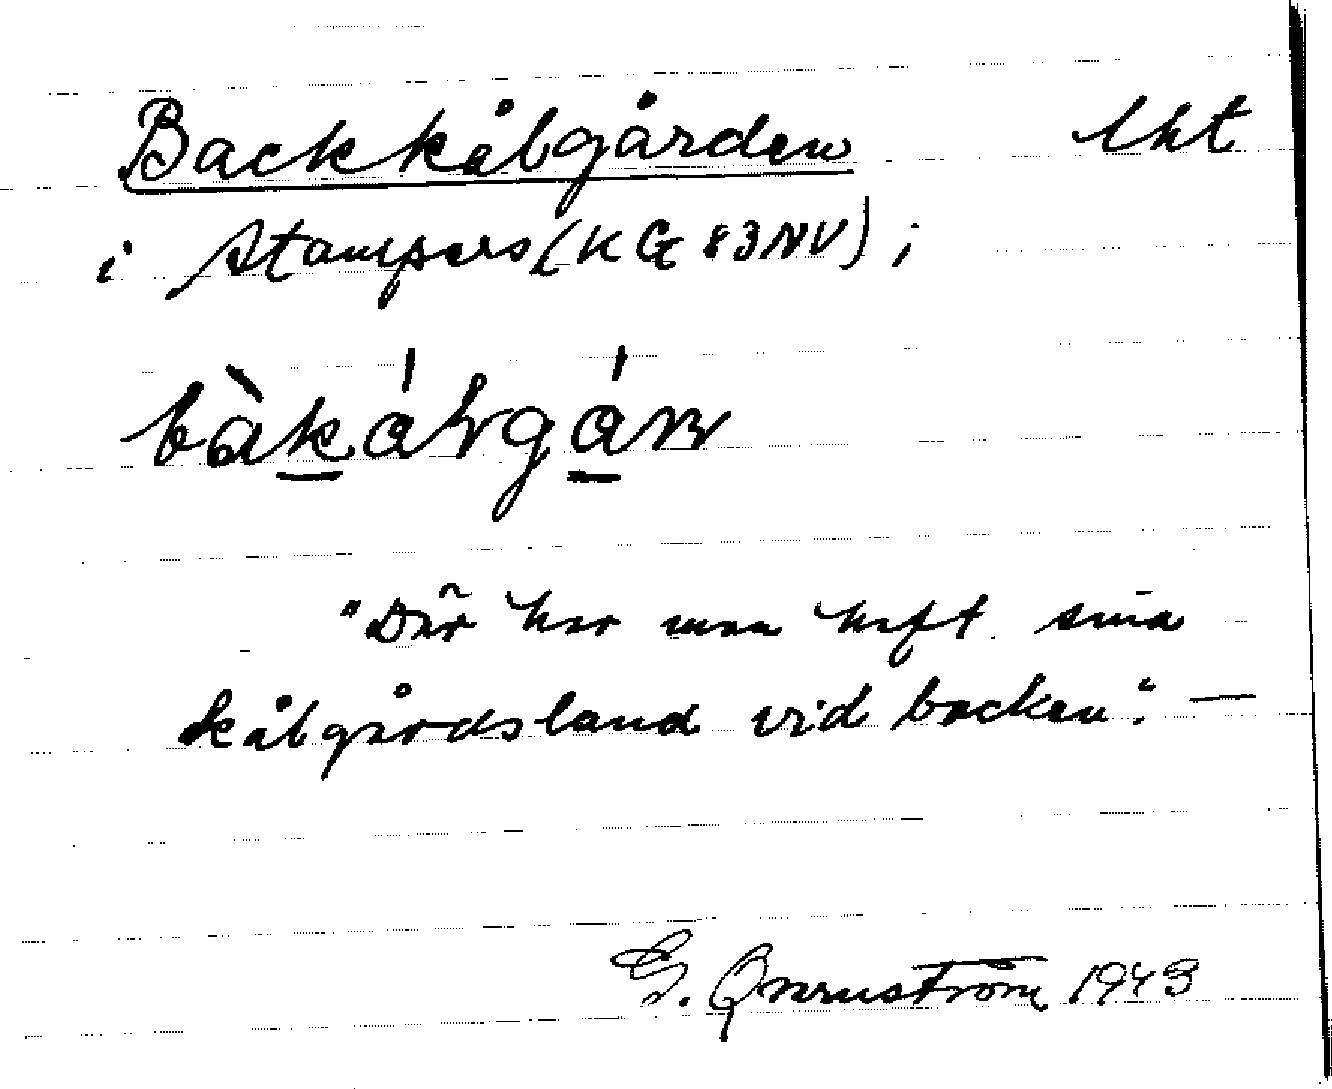 Backkålgården lht
i Stampers (KG 83NV);
"Där har man haft sina
kålgårdsland vid backen." —
G. 1943